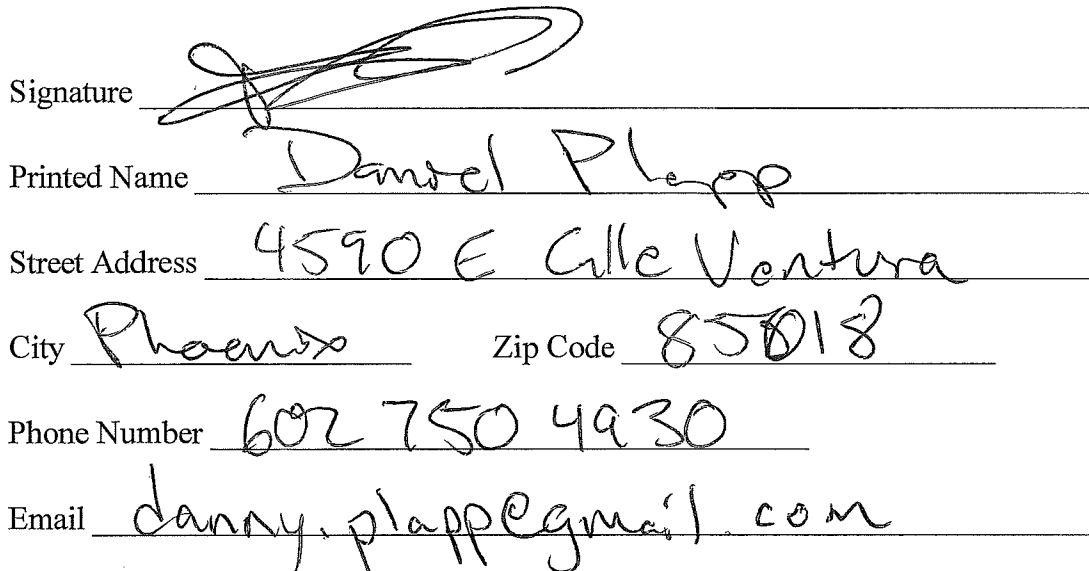 Signature
Printed Name Daniel Plapp
Street Address 4590 E Calle Ventura
City Phoenix Zip Code 85018
Phone Number 602 750 4930
Email danny.plapp@gmail.com